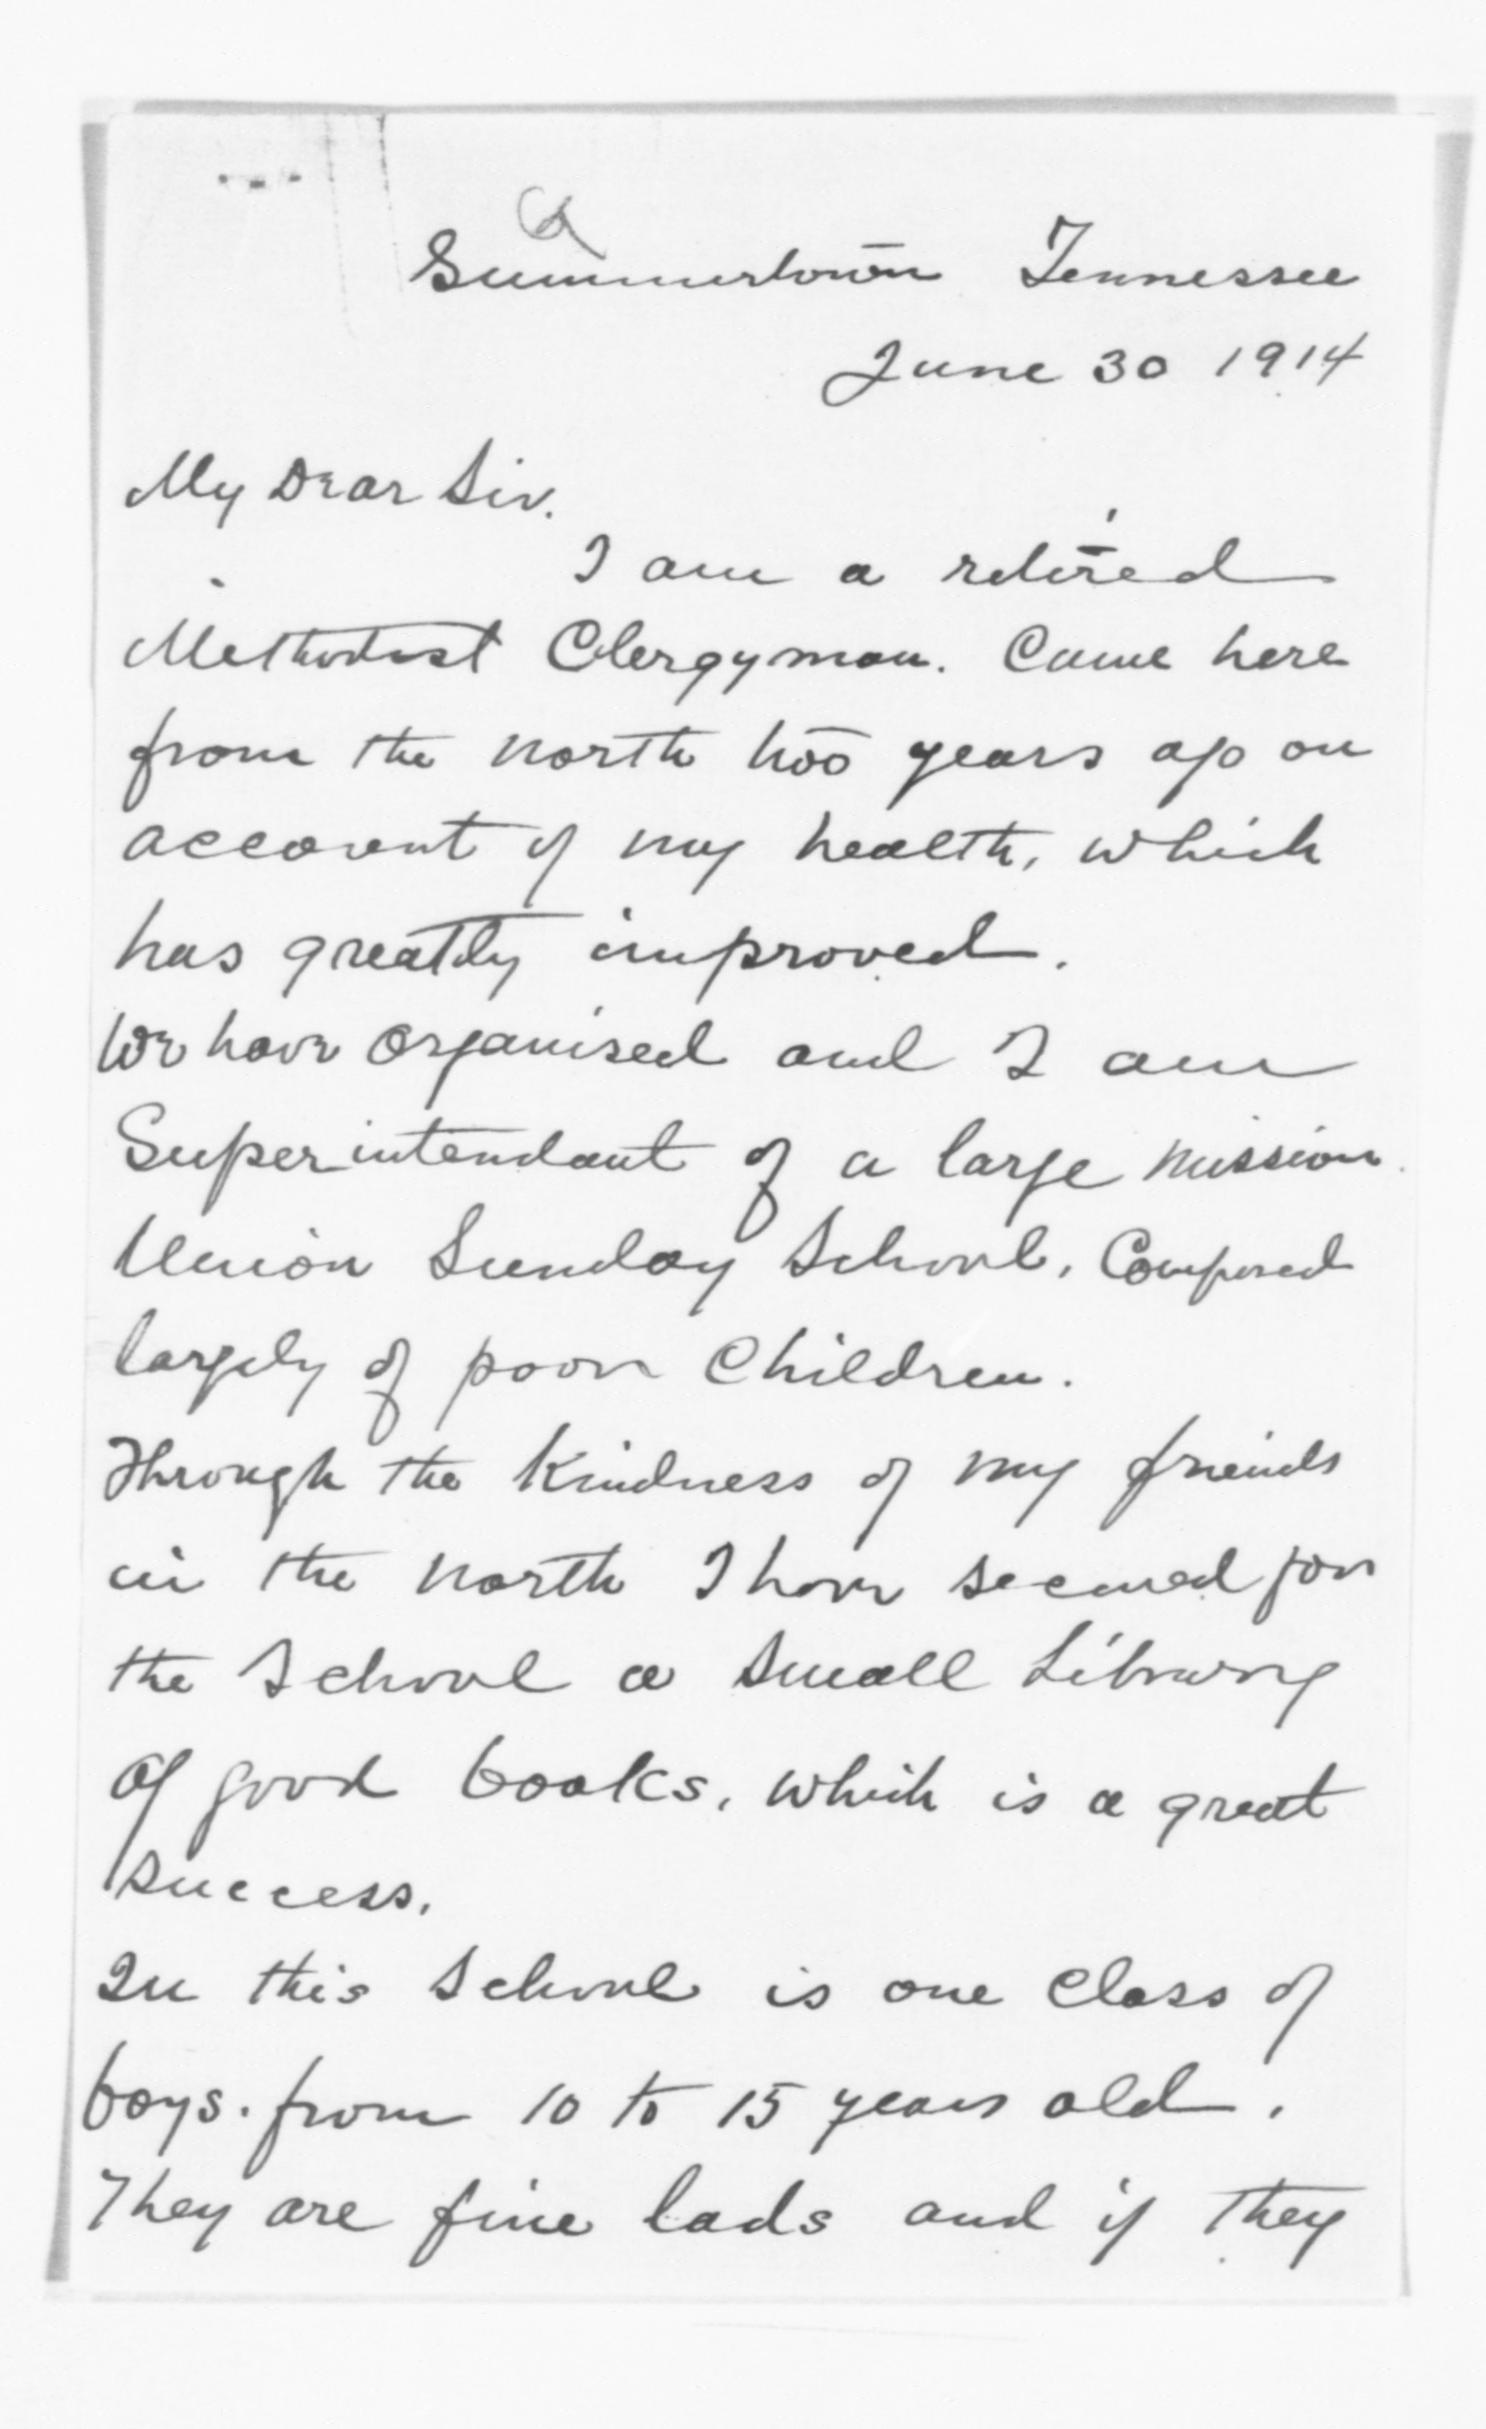 Summertown Tennessee
June 30 1914
My Dear Sir.
I am a retired
Methodist Clergyman. Came here
from the north two years ago on
account of my health, which
has greatly improved.
We have organised and I am
Superintendant of a large mission
Union Sunday School, Composed
largely of poor Children.
Through the Kindness of my friends
in the north I have secured for
the School a small Library
of good books, which is a great
success.
In this School is one Class of
boys. from 10 to 15 years old.
They are fine lads and if they